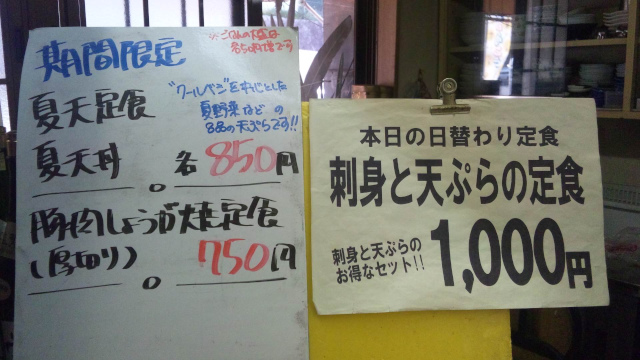 期間限定
※ごはんの大盛は
各50円増です
夏天定食
"クールベジ"をすじとした
夏野菜などの
8品の天ぷらです!!
夏天丼 各850円
豚肉しょうが焼定食
(厚切り) 750円
本日の日替わり定食
刺身と天ぷらの定食
刺身と天ぷらの
お得なセット!!
1,000円